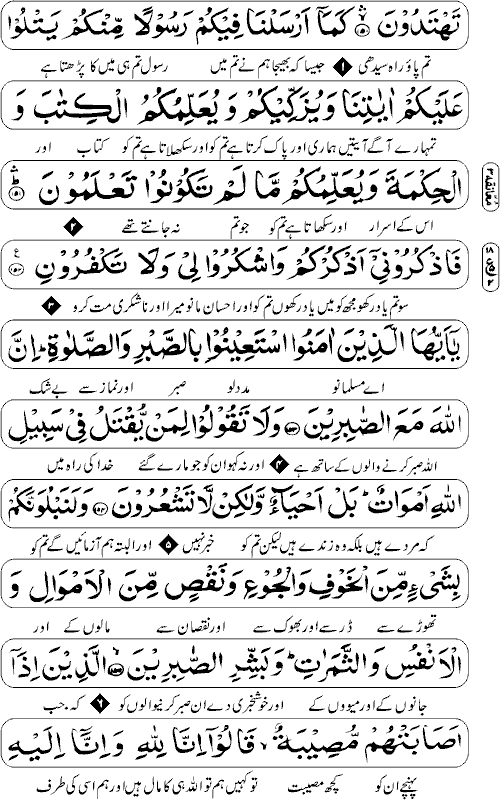 تَهْتَدُوْنَ ۝ كَمَاۤ اَرْسَلْنَا فِيْكُمْ رَسُوْلًا مِّنْكُمْ يَتْلُوْا
تم پاؤ راہ سیدھی ۱ جیسا کہ بھیجا ہم نے تم میں رسول تم ہی میں کا پڑھتا ہے
عَلَيْكُمْ اٰيٰتِنَا وَيُزَكِّيْكُمْ وَيُعَلِّمُكُمُ الْكِتٰبَ وَ
تمہارے آگے آیتیں ہماری اور پاک کرتا ہے تم کو اور سکھلاتا ہے تم کو کتاب اور
الْحِكْمَةَ وَيُعَلِّمُكُمْ مَّا لَمْ تَكُوْنُوْا تَعْلَمُوْنَ ۝ؕ
اس کے اسرار اور سکھاتا ہے تم کو جو تم نہ جانتے تھے ۲
فَاذْكُرُوْنِيْۤ اَذْكُرْكُمْ وَاشْكُرُوْا لِيْ وَلَا تَكْفُرُوْنِ ۝
سو تم یاد رکھو مجھ کو میں یاد رکھوں تم کو اور احسان مانو میرا اور ناشکری مت کرو ۳
يٰۤاَيُّهَا الَّذِيْنَ اٰمَنُوا اسْتَعِيْنُوْا بِالصَّبْرِ وَالصَّلٰوةِ ؕ اِنَّ
اے مسلمانو مدد لو صبر اور نماز سے بے شک
اللّٰهَ مَعَ الصّٰبِرِيْنَ ۝ وَلَا تَقُوْلُوْا لِمَنْ يُّقْتَلُ فِيْ سَبِيْلِ
اللہ صبر کرنے والوں کے ساتھ ہے ۴ اور نہ کہو ان کو جو مارے گئے خدا کی راہ میں
اللّٰهِ اَمْوَاتٌ ؕ بَلْ اَحْيَآءٌ وَّلٰكِنْ لَّا تَشْعُرُوْنَ ۝ وَلَنَبْلُوَنَّكُمْ
کہ مردے ہیں بلکہ وہ زندے ہیں لیکن تم کو خبر نہیں ۵ اور البتہ ہم آزمائیں گے تم کو
بِشَيْءٍ مِّنَ الْخَوْفِ وَالْجُوْعِ وَنَقْصٍ مِّنَ الْاَمْوَالِ وَ
تھوڑے سے ڈر سے اور بھوک سے اور نقصان سے مالوں کے اور
الْاَنْفُسِ وَالثَّمَرٰتِ ؕ وَبَشِّرِ الصّٰبِرِيْنَ ۝ الَّذِيْنَ اِذَاۤ
جانوں کے اور میووں کے اور خوشخبری دے ان صبر کرنیوالوں کو ۶ کہ جب
اَصَابَتْهُمْ مُّصِيْبَةٌ ۙ قَالُوْۤا اِنَّا لِلّٰهِ وَاِنَّاۤ اِلَيْهِ
پہنچے ان کو کچھ مصیبت تو کہیں ہم تو اللہ ہی کا مال ہیں اور ہم اسی کی طرف